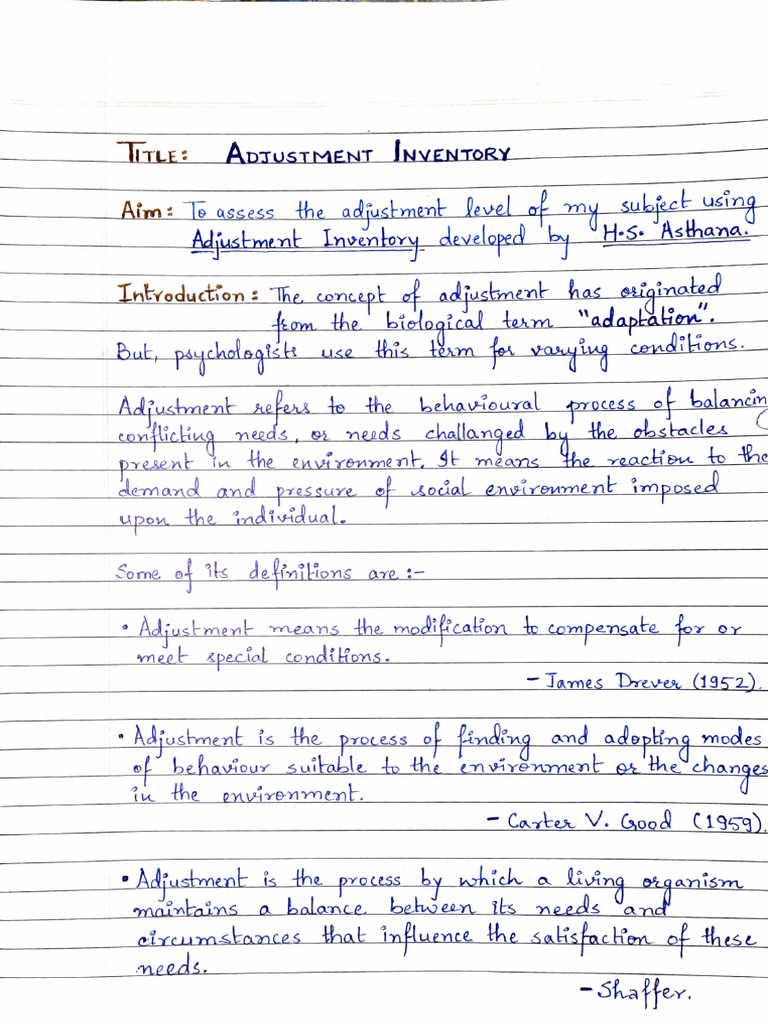 TITLE: ADJUSTMENT INVENTORY
Aim: To assess the adjustment level of my subject using
Adjustment Inventory developed by H.S. Asthana.
Introduction: The concept of adjustment has originated
from the biological term "adaptation".
But, psychologists use this term for varying conditions.
Adjustment refers to the behavioural process of balancin
conflicting needs, or needs challanged by the obstacles
present in the environment. It means the reaction to the
demand and pressure of social environment imposed
upon the individual.
Some of its definitions are :-
• Adjustment means the modification to compensate for or
meet special conditions.
- James Drever (1952).
• Adjustment is the process of finding and adopting modes
of behaviour suitable to the environment or the changes
in the environment.
- Carter V. Good (1959).
• Adjustment is the process by which a living organism
maintains a balance between its needs and
circumstances that influence the satisfaction of these
needs.
- Shaffer.